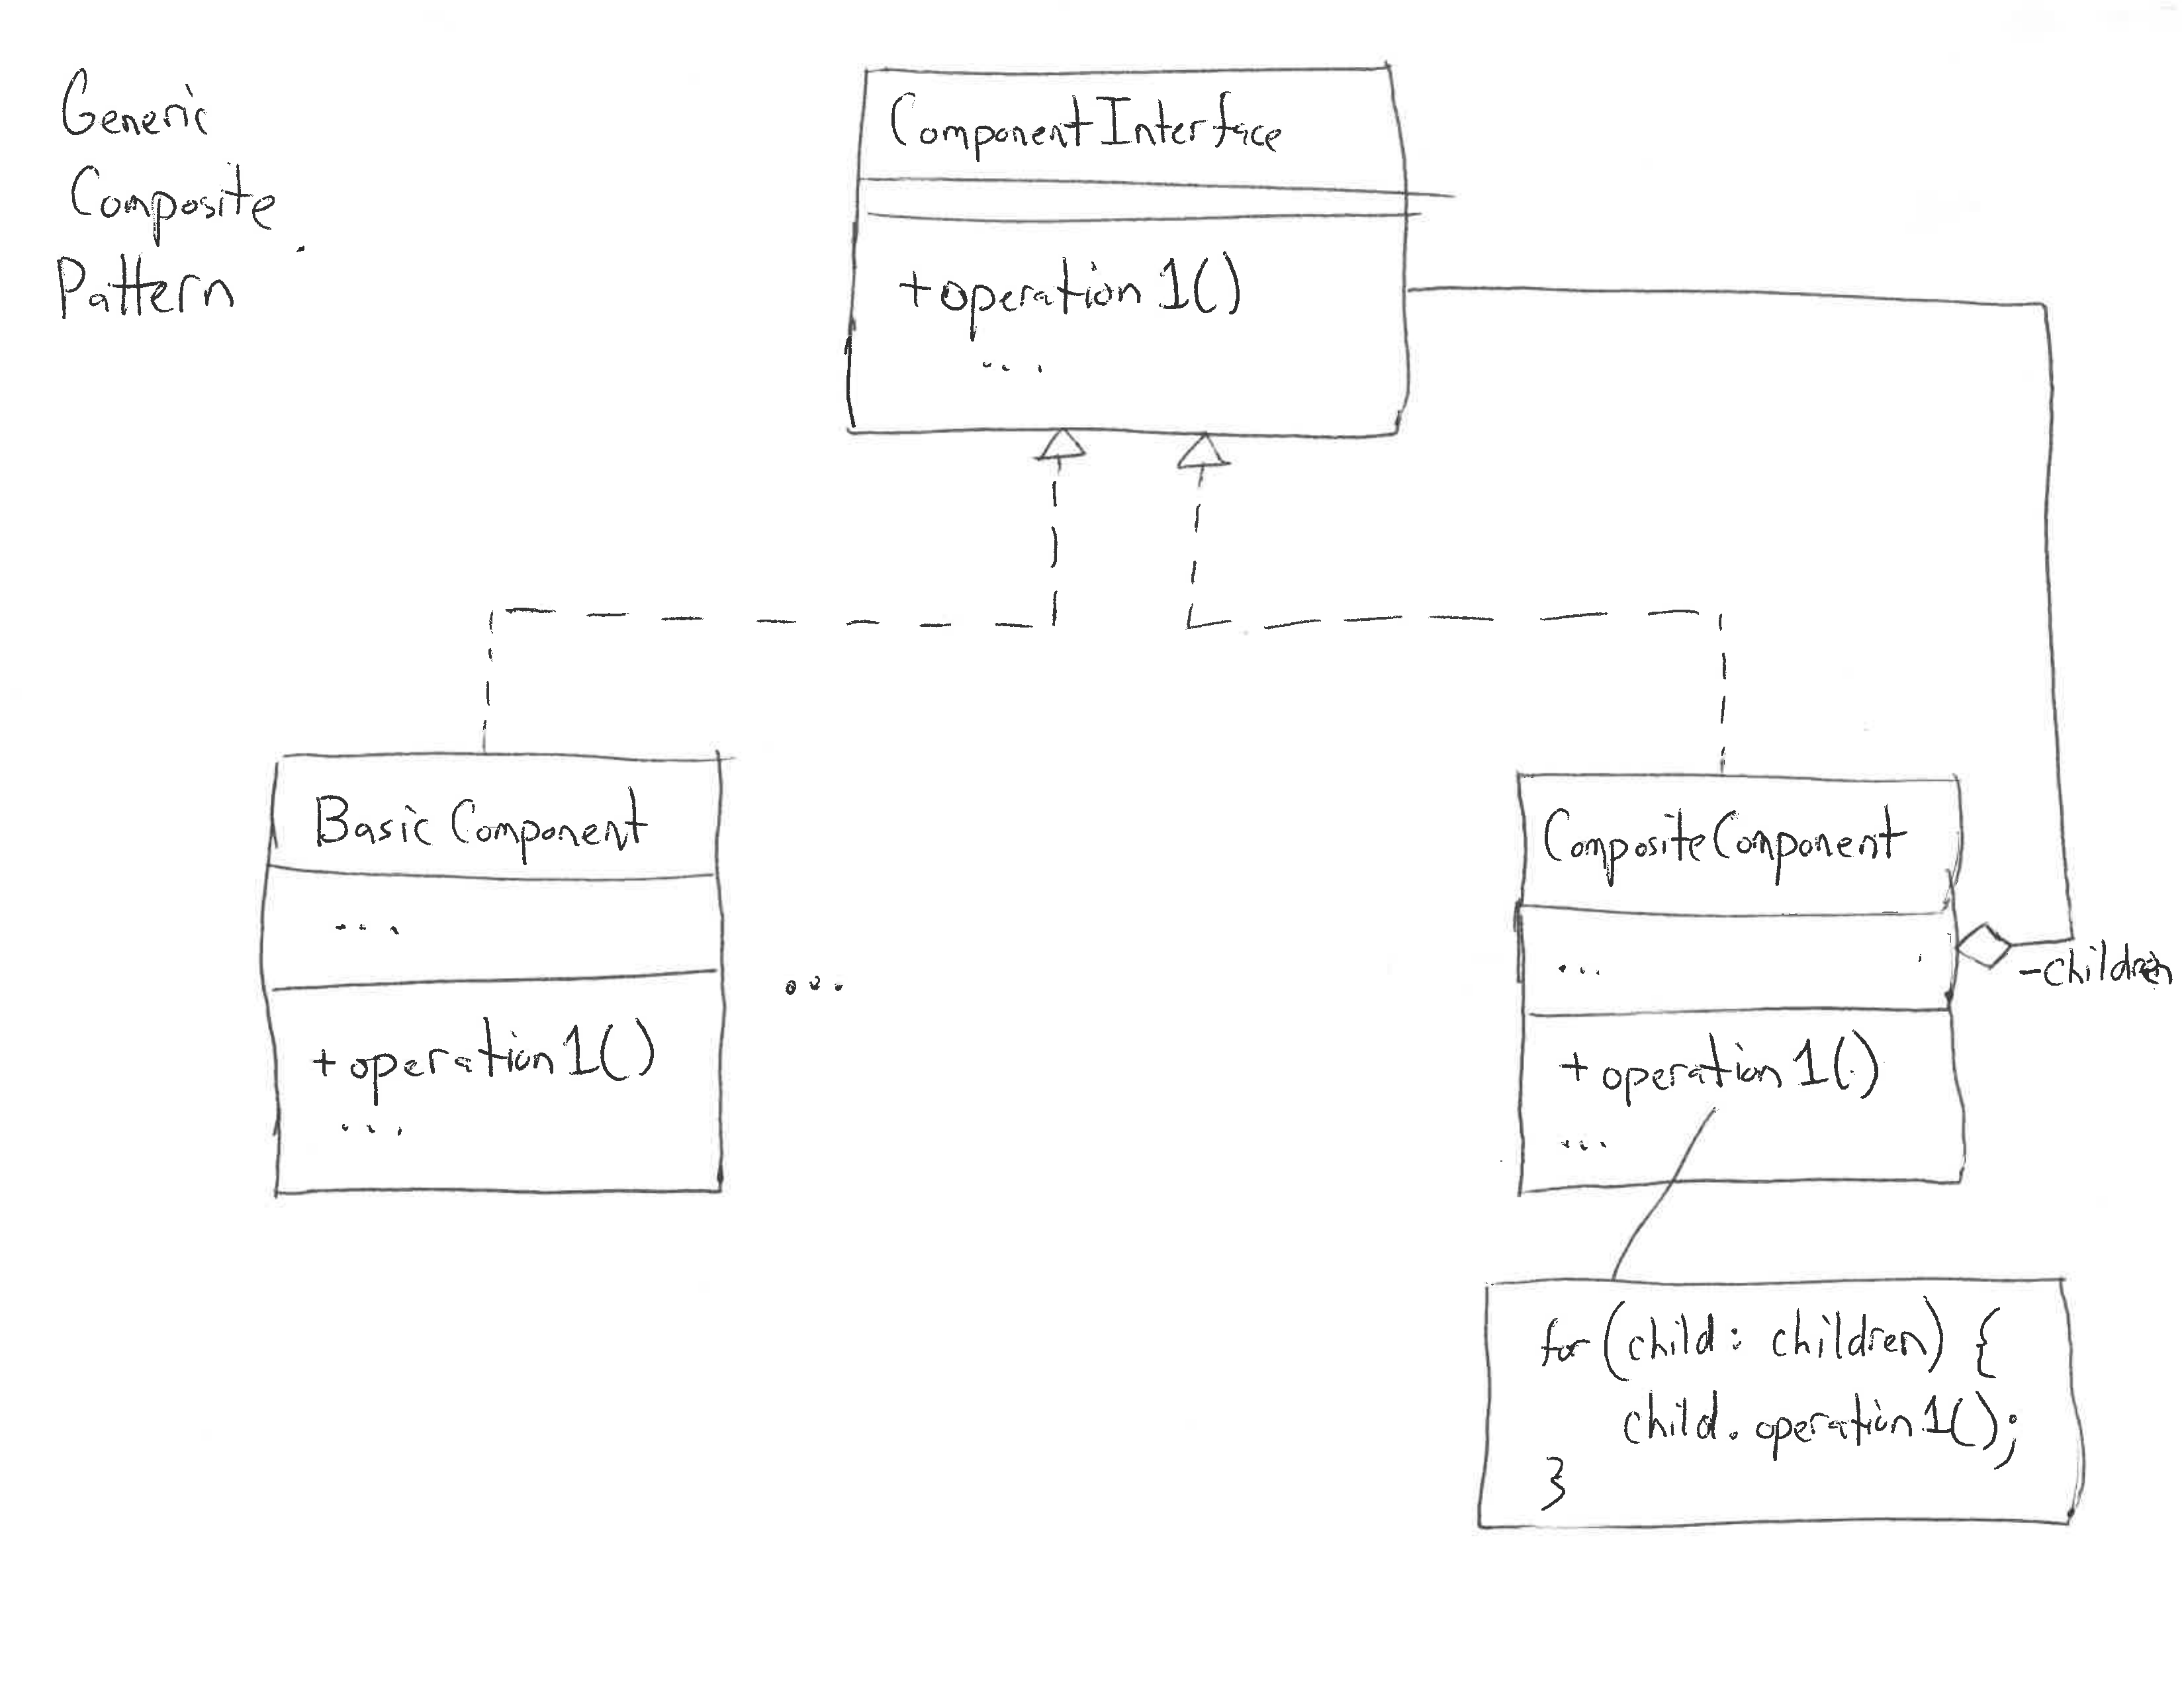 Generic
Composite
Pattern
ComponentInterface
+operation1()
...
BasicComponent
...
+operation1()
...
...
CompositeComponent
...
-children
+operation1()
...
for (child: children) {
child.operation1();
}